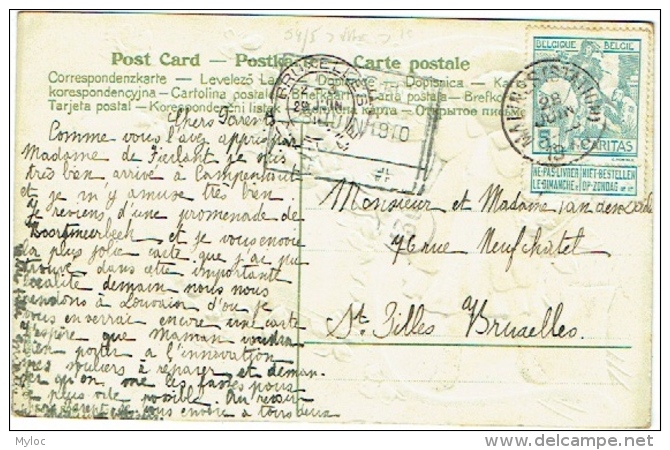 Post Card – Postkarte – Carte postale
Correspondenzkarte – Levelező La – Dopisnica – Ka
korespondencyjna – Cartolina postal – Briefkaart – karta postal – Brefko
Tarjeta postal – Korespondenční listek – karta – Открытое письмо
BELGIQUE BELGIE
5
CARITAS
NE PAS LIVRER NIET BESTELLEN
LE DIMANCHE OP ZONDAG
MALINES (STATION)
28
JUIN
BRUXELLES
JUIN 1910
Chers Parents
Comme vous l'avez appris par
Madame de Fierlant je suis
très bien arrivé à Campenhout
et je m'y amuse très bien
Je reviens d'une promenade de
Boortmeerbeek et je vous envoie
la plus jolie carte que j'ai pu
trouver dans cette importante
localité demain nous nous
rendons à Louvain d'où je
vous enverrai encore une carte
J'espère que Maman voudra
bien porter à l'innovation
mes souliers à réparer et deman-
der qu'on me les fasse pour
le plus vite possible. Au revoir
chers Parents je vous envoie à tous deux
Monsieur et Madame Van den
76 rue Neufchatel
St. Gilles Bruxelles.
Myloc
delcampe.net